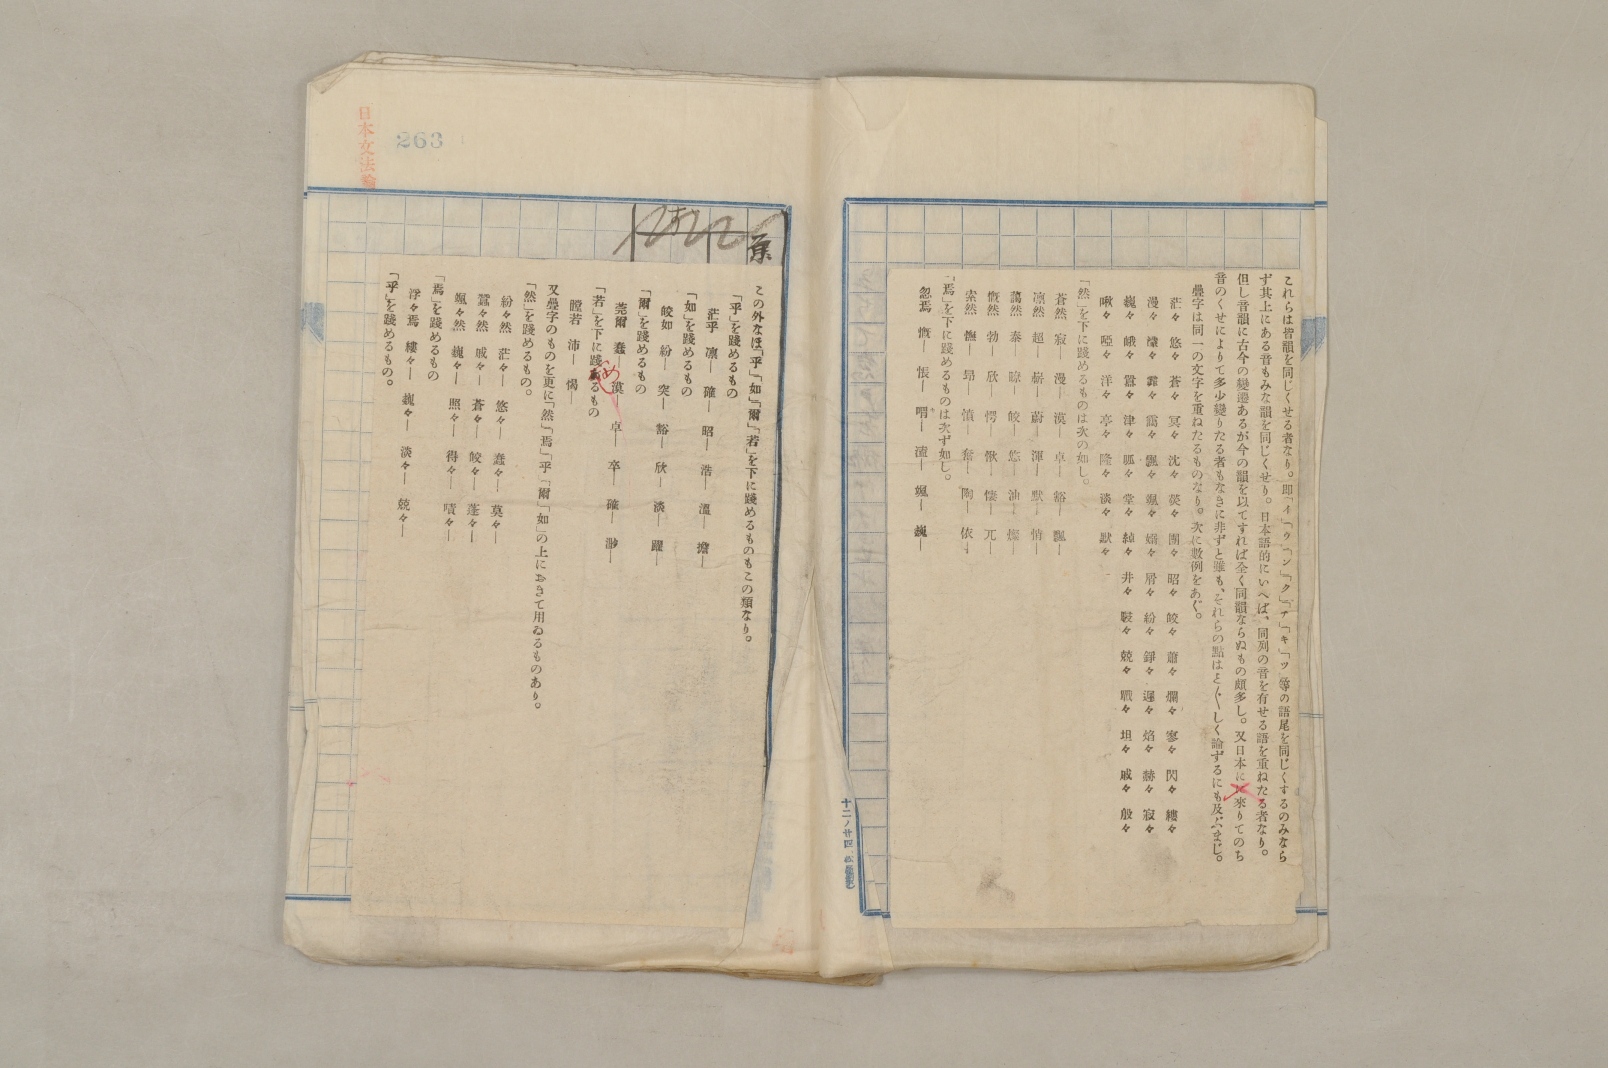 これらは皆韻を同じくせる者なり。即「イ」「ウ」「ン」「ク」「チ」「キ」「ツ」等の語尾を同じくするのみなら
ず其上にある音もみな韻を同じくせり。日本語的にいへば、同列の音を有せる語を重ねたる者なり。
但し音韻に古今の變遷あるが今の韻を以てすれば全く同韻ならぬもの頗多し。又日本に來りてのち
音のくせによりて多少變りたる者もなきに非ずと雖も、それらの點はこと〴〵しく論ずるにも及ぶまじ。
疊字は同一の文字を重ねたるものなり。次に數例をあぐ。
茫々 悠々 蒼々 冥々 沈々 炎々 團々 昭々 皎々 蕭々 爛々 寥々 閃々 縷々
漫々 濛々 靄々 飄々 颯々 嫋々 屑々 紛々 錚々 遲々 焰々 赫々 寂々
巍々 峨々 囂々 津々 呱々 堂々 綽々 井々 駸々 兢々 戰々 坦々 戚々 殷々
啾々 啞々 洋々 亭々 隆々 淡々 默々
「然」を下に踐めるものは次の如し。
蒼然 寂― 漫― 漠― 卓― 豁― 飄―
凛然 超― 嶄― 蔚― 渾― 默― 悄―
藹然 泰― 瞭― 皎― 悠― 油― 燦―
慨然 勃― 欣― 愕― 愀― 悽― 兀―
索然 憮― 昂― 憤― 奮― 陶― 依―
「焉」を下に踐めるものは次ず如し。
忽焉 慨― 悵― 喟― 潸― 颯― 巍―
十二ノ廿四
日本文法論
263
この外なほ「乎」「如」「爾」「若」を下に踐めるものもこの類なり。
「乎」を踐めるもの
茫乎 凛― 確― 昭― 浩― 溫― 擔―
「如」を踐めるもの
皎如 紛― 突― 豁― 欣― 淡― 躍―
「爾」を踐めるもの
莞爾 蠢― 漠― 卓― 卒― 確― 渺―
「若」を下に踐めるもの
瞠若 沛― 惕―
又疊字のものを更に「然」「焉」「乎」「爾」「如」の上におきて用ゐるものあり。
「然」を踐めるもの。
紛々然 茫々― 悠々― 蠢々― 莫々―
蠶々然 戚々― 蒼々― 皎々― 蓬々―
颯々然 巍々― 照々― 得々― 嘖々―
「焉」を踐めるもの
浮々焉 縷々― 巍々― 淡々― 兢々―
「乎」を踐めるもの。